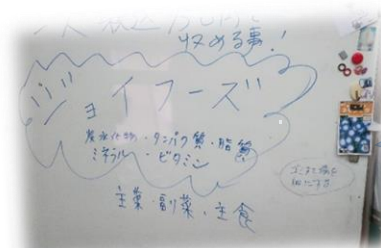 収める事!
ジョイフーズ
炭水化物・タンパク質・脂質
ミネラル・ビタミン
主菜・副菜・主食